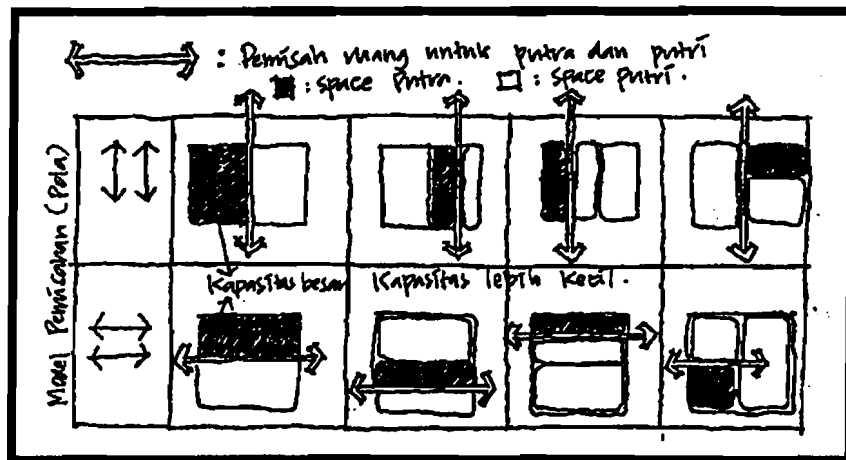 : Pemisah ruang untuk putra dan putri
: space putra. : space putri.
Model Pemisahan (Pola)
Kapasitas besar
Kapasitas lebih kecil.